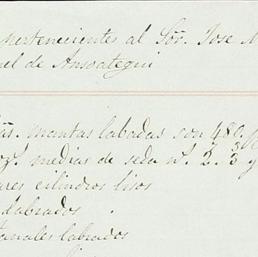 pertenecientes al Sōr. Jose M
el de Ansoategui
as. mantas labadas son 480. p
oz.s medias de seda n.o 2. 3 y
ares cilindros lisos
labrados .
fanales labrados